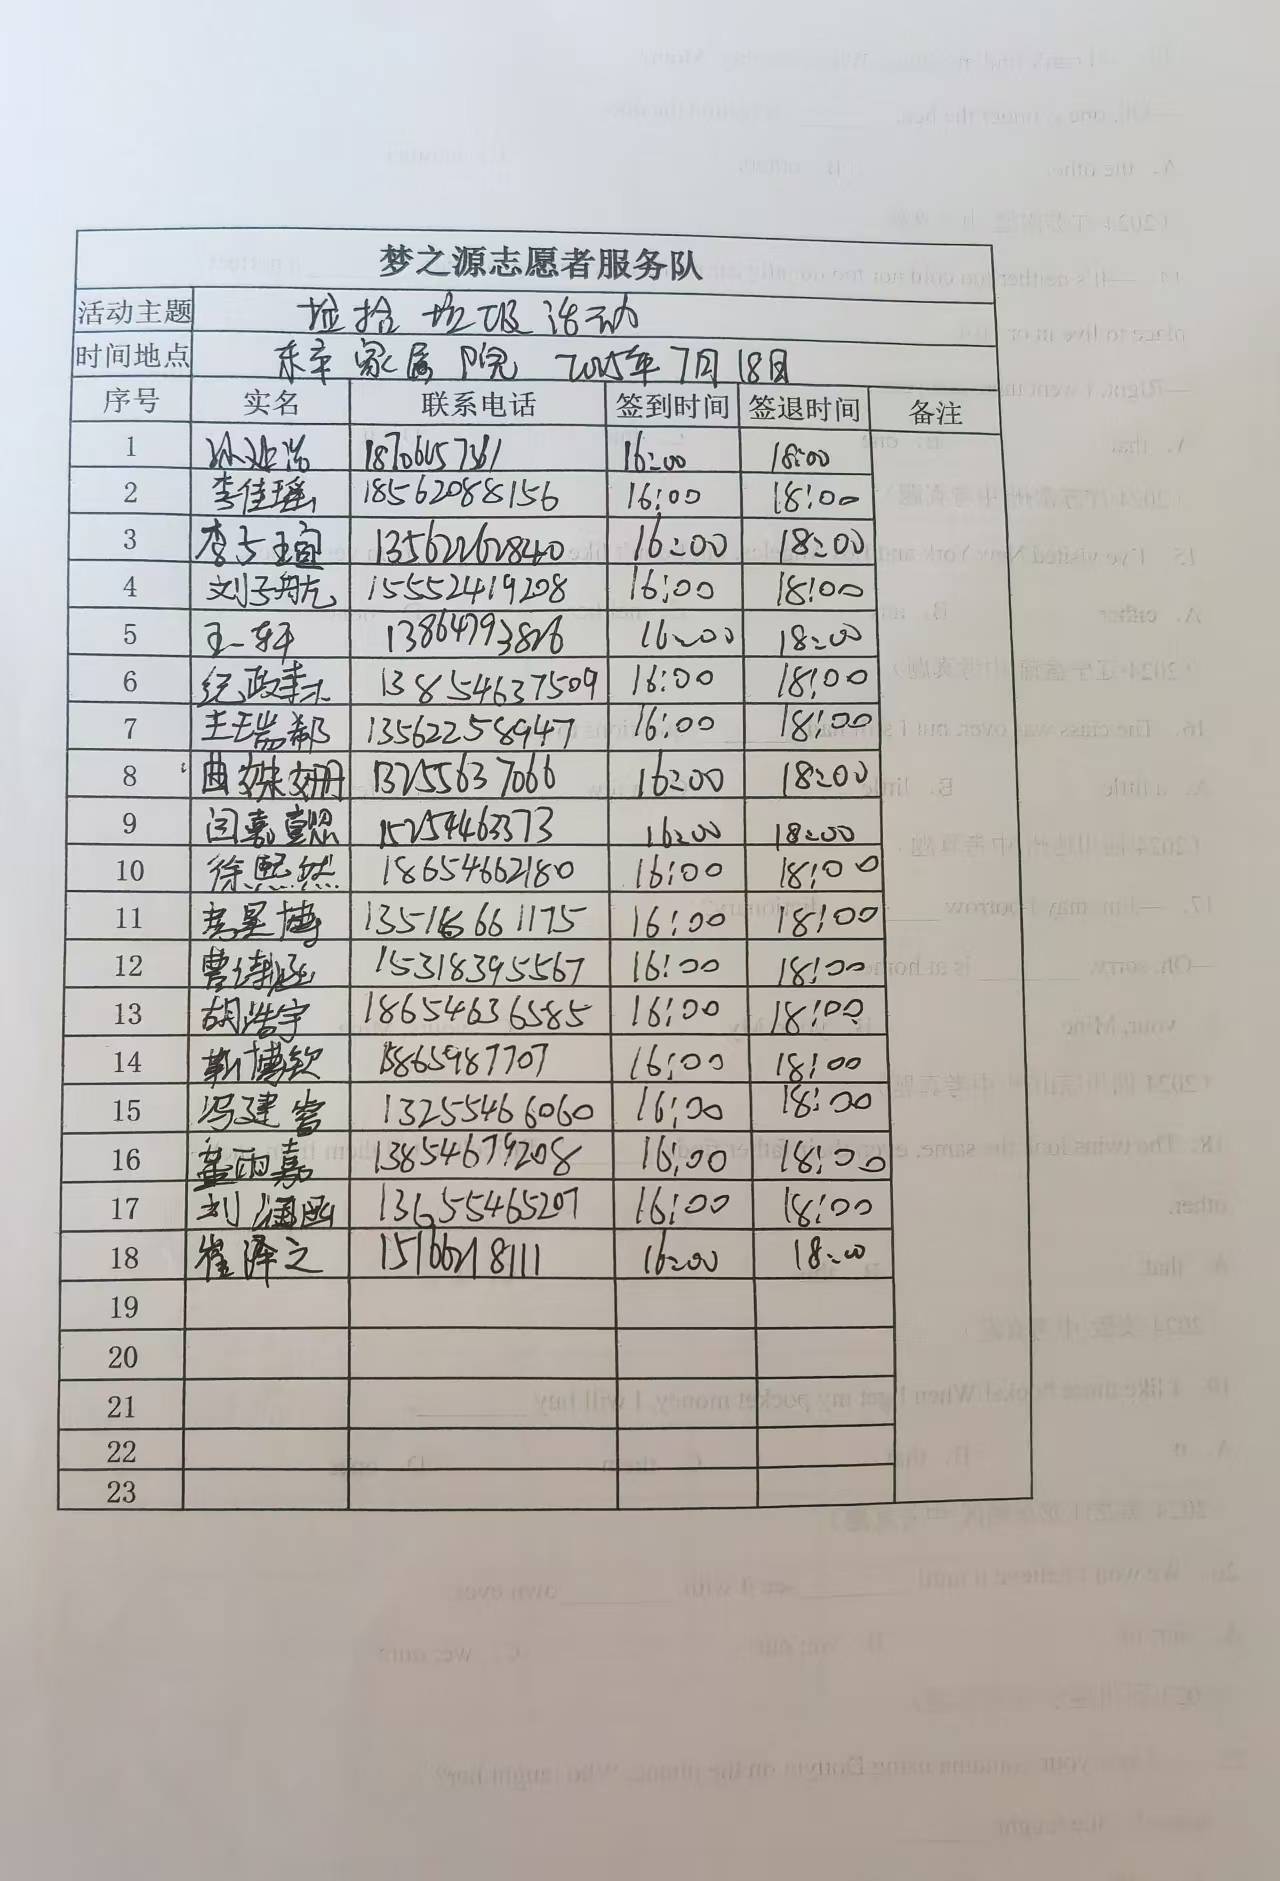 梦之源志愿者服务队
活动主题 捡拾垃圾活动
时间地点 东辛家属院 2025年7月18日
序号 实名 联系电话 签到时间 签退时间 备注
1 16:00 18:00
2 李佳瑶 18562088156 16:00 18:00
3 李子瑄 13562262840 16:00 18:00
4 刘子航 15552419208 16:00 18:00
5 王一轩 13864793826 16:00 18:00
6 纪政 13854637509 16:00 18:00
7 王瑞郗 13562258947 16:00 18:00
8 曲姝姗 13255637066 16:00 18:00
9 闫嘉 15254463373 16:00 18:00
10 徐熙然 18654662180 16:00 18:00
11 16:00 18:00
12 曹 15318395567 16:00 18:00
13 胡浩宇 18654636585 16:00 18:00
14 靳博钦 16:00 18:00
15 冯建 13255466060 16:00 18:00
16 董雨嘉 13854679208 16:00 18:00
17 刘涵函 13655465207 16:00 18:00
18 崔泽之 15166218111 16:00 18:00
19
20
21
22
23